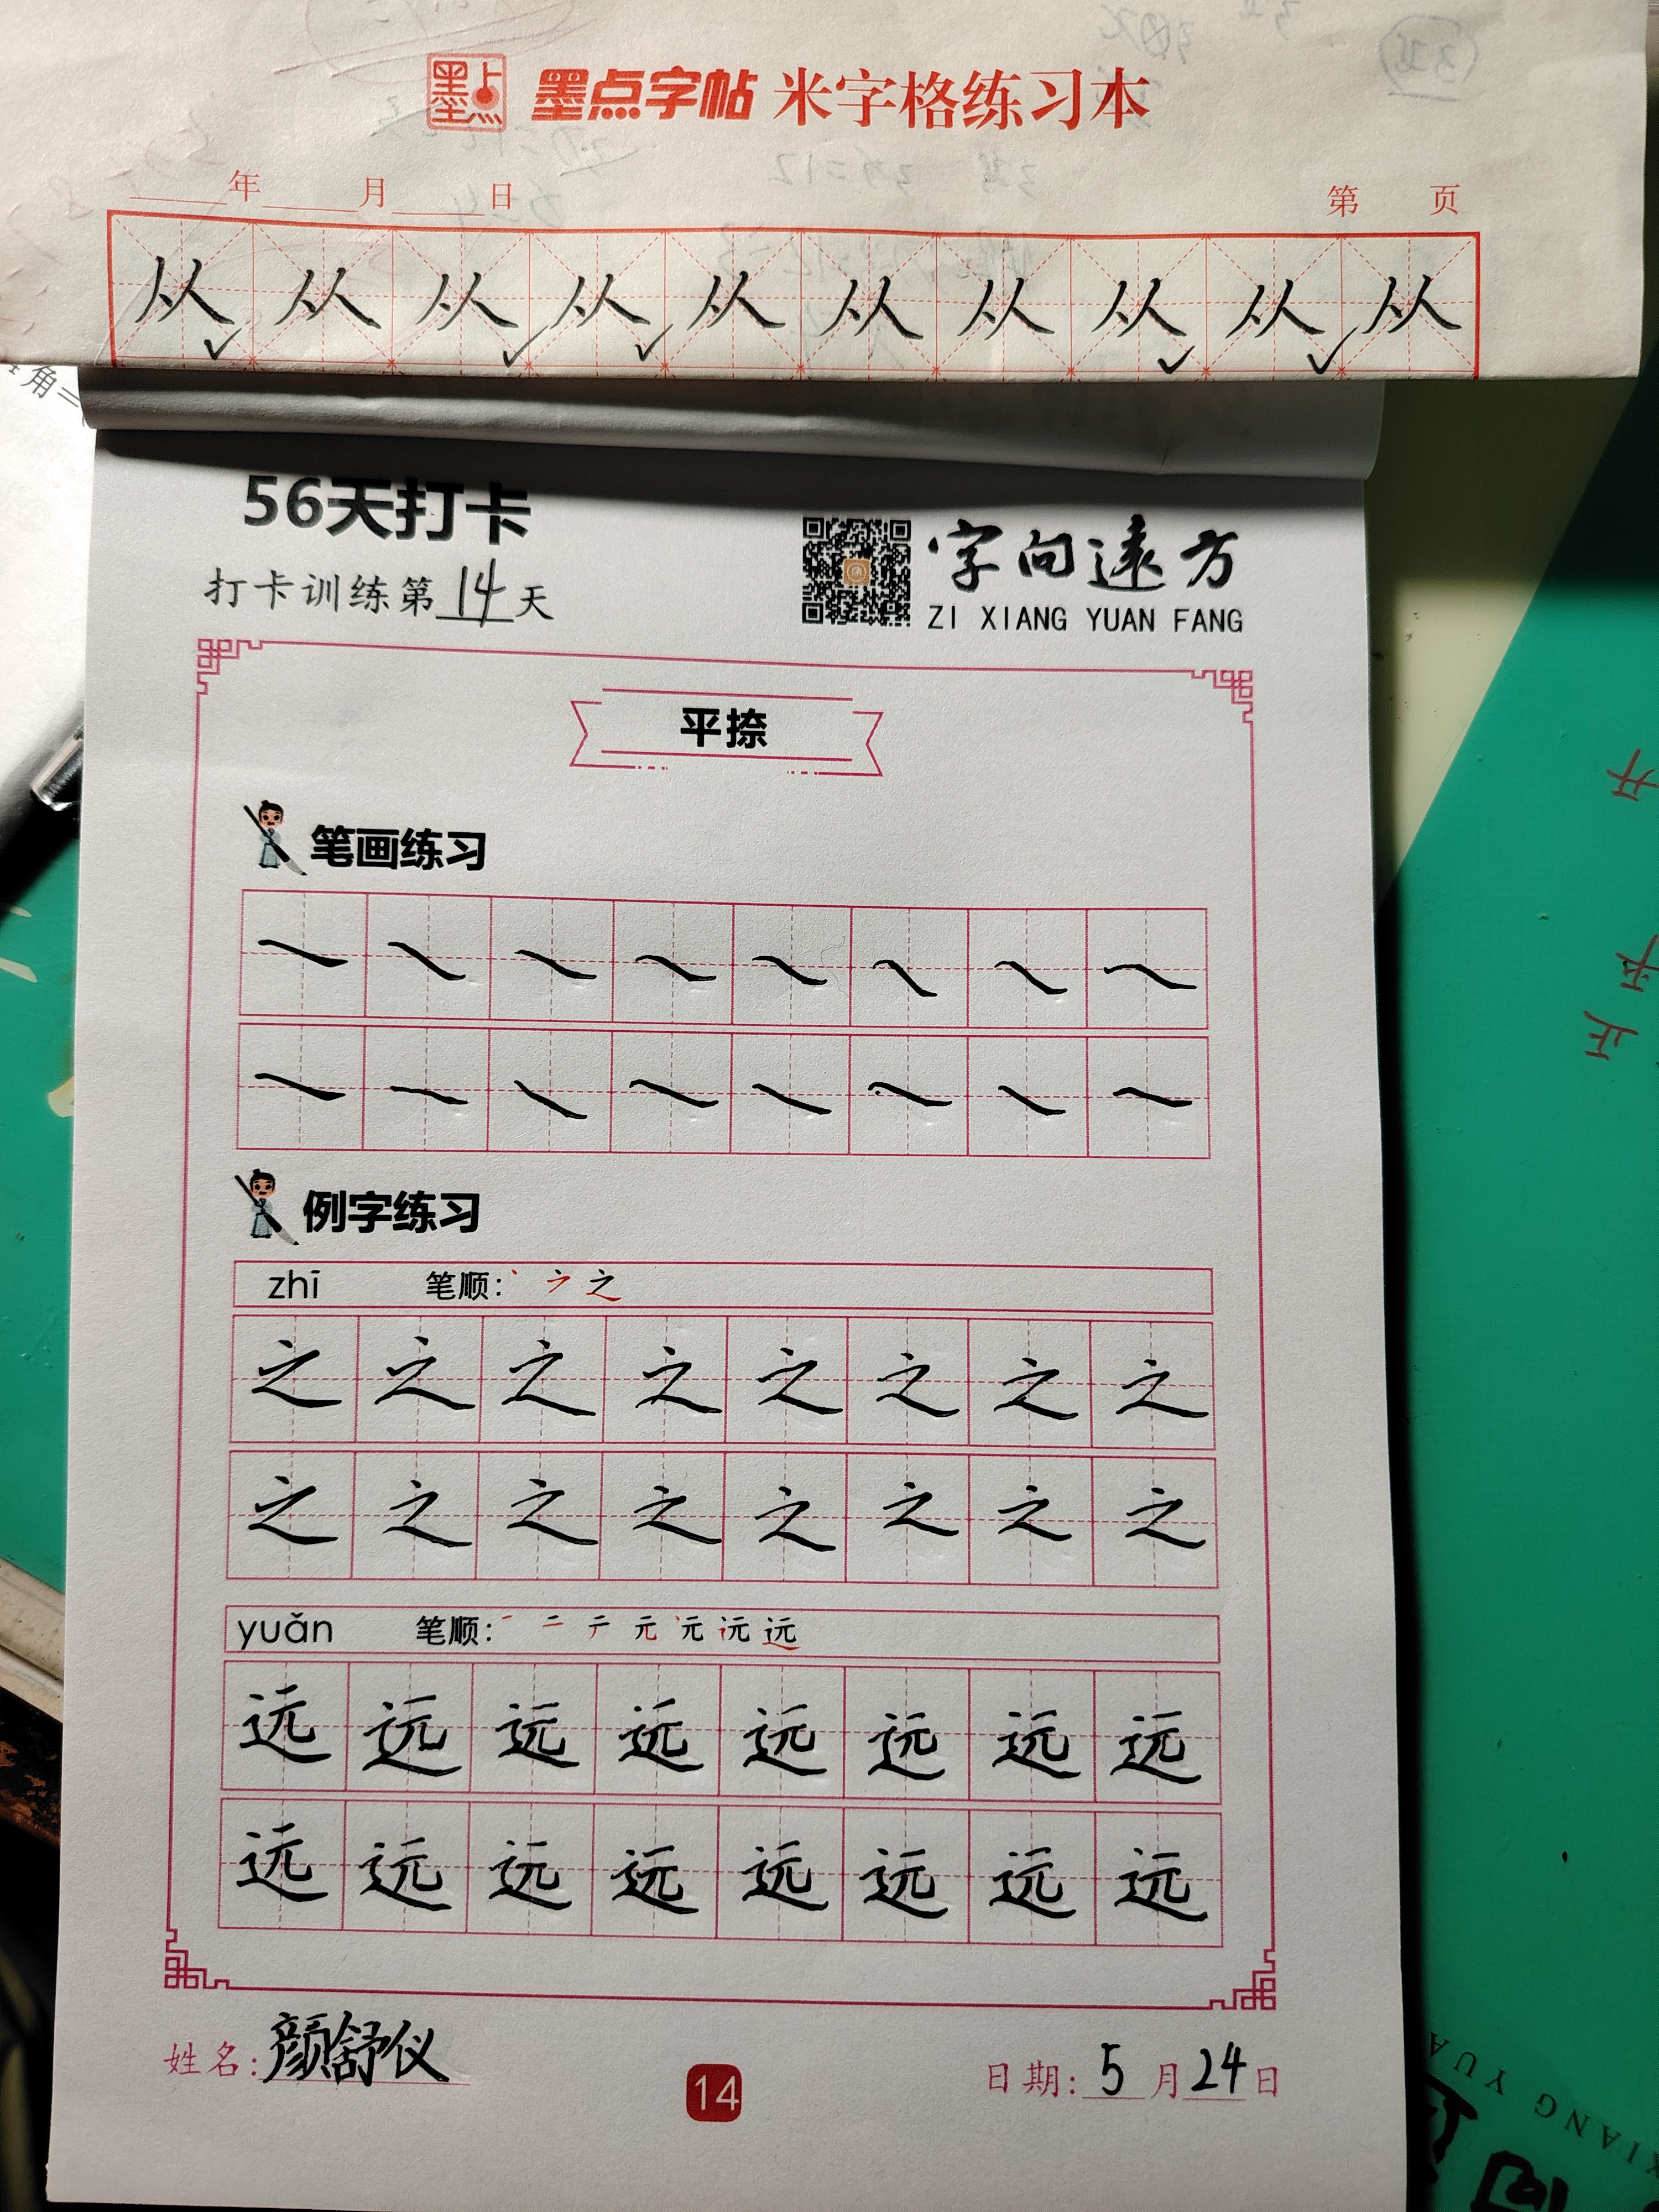 墨点字帖 米字格练习本
年 月 日 第 页
从 从 从 从 从 从 从 从 从 从
56天打卡
打卡训练第14天
字向远方
ZI XIANG YUAN FANG
平捺
笔画练习
例字练习
zhī 笔顺: 丶 之
之 之 之 之 之 之 之 之
之 之 之 之 之 之 之 之
yuǎn 笔顺: 一 二 元 远
远 远 远 远 远 远 远 远
远 远 远 远 远 远 远 远
姓名: 颜舒仪
14
日期: 5月24日
开
平
正